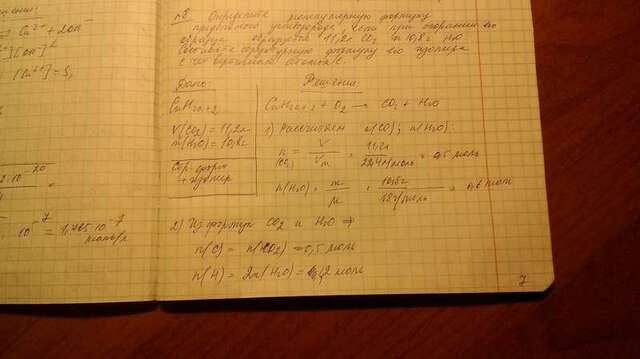 Ca²⁺ + 2OH⁻
][OH]²
[Ca²⁺] = S,
10⁻²⁰
=
10⁻⁷ = 1,765·10⁻⁷
моль/л
№8 Определите молекулярную формулу
предельного углеводорода, если при сгорании его
образца образуется 11,2л CO₂ и 10,8г H₂O.
Составьте структурную формулу его изомера
с четвертичным атомом C.
Дано:
CnH2n+2
V(CO₂) = 11,2л
m(H₂O) = 10,8г
Стр. форм
изомер
Решение:
CnH2n+2 + O₂ → CO₂ + H₂O
1) Рассчитаем n(CO); n(H₂O):
n(CO₂) = V/Vm = 11,2л/22,4л/моль = 0,5 моль
n(H₂O) = m/M = 10,8г/18г/моль = 0,6 моль
2) Из формул CO₂ и H₂O ⇒
n(C) = n(CO₂) = 0,5 моль
n(H) = 2n(H₂O) = 1,2 моль
7